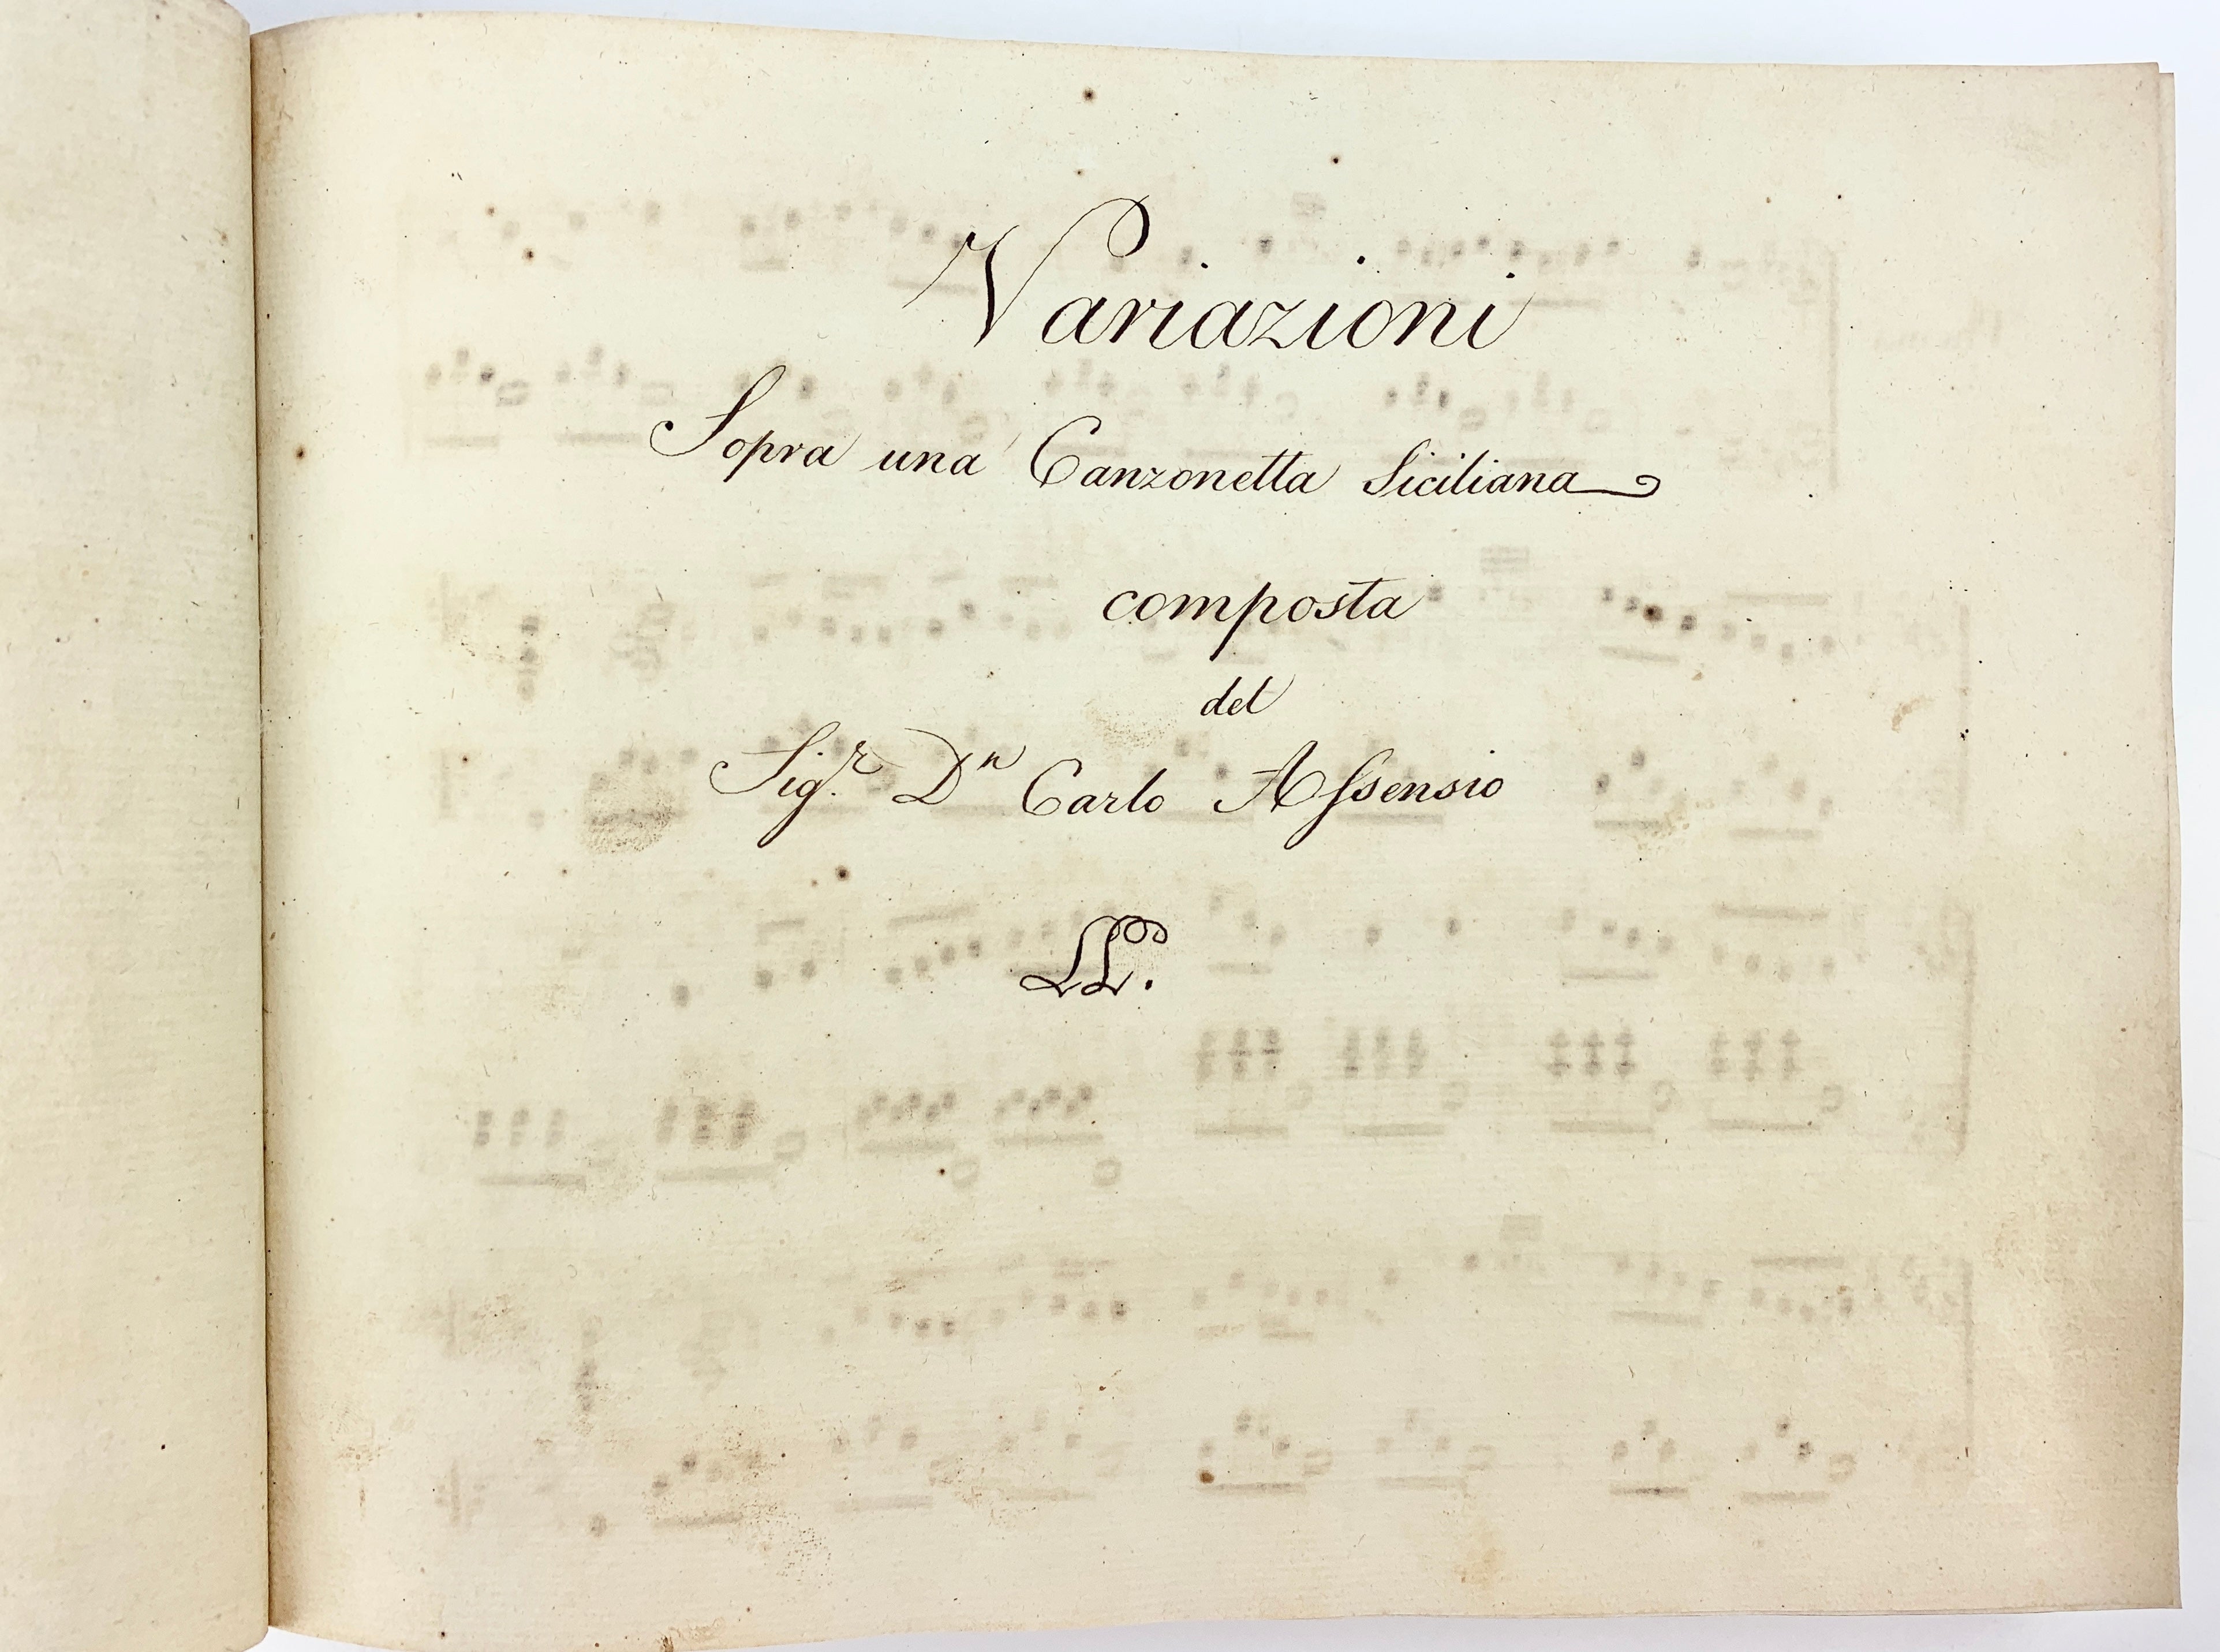 Variazioni
Sopra una Canzonetta Siciliana
composta
del
Sig.r Dn Carlo Assensio